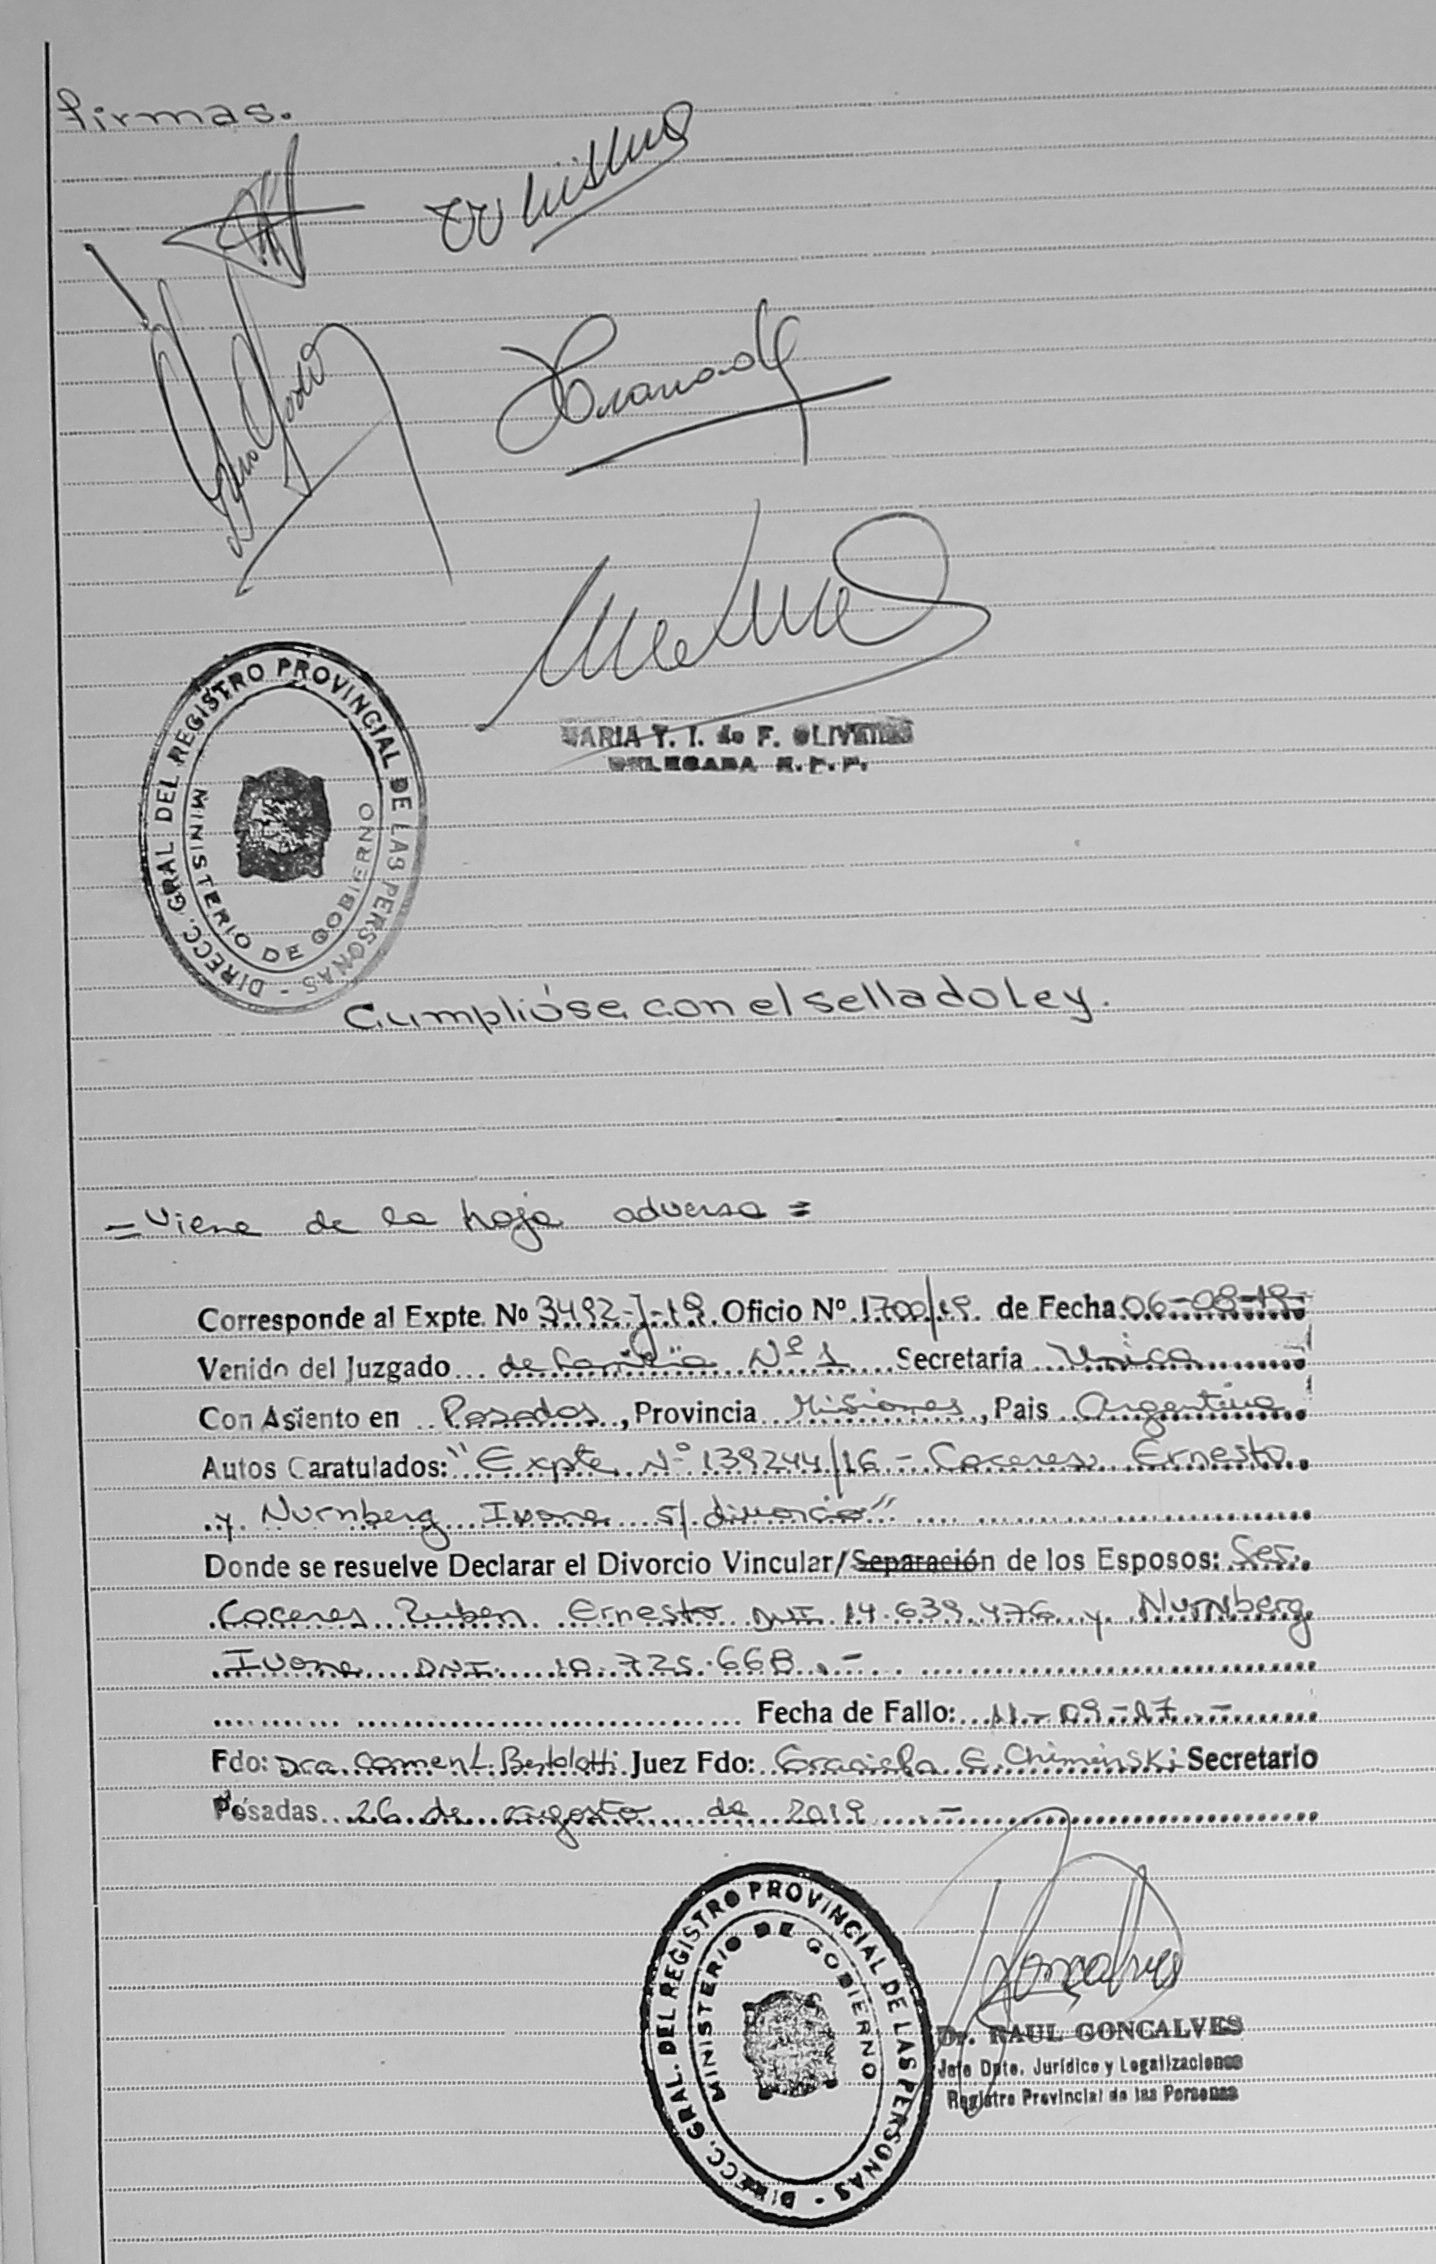 firmas.
MARIA T. I. de F. OLIVEROS
DELEGADA R. P. P.
DIRECC. GRAL. DEL REGISTRO PROVINCIAL DE LAS PERSONAS -
MINISTERIO DE GOBIERNO
Cumplióse con el sellado Ley.
= Viene de la hoja adversa =
Corresponde al Expte. Nº 3492-J-19. Oficio Nº 1700/19. de Fecha 06-08-19-
Venido del Juzgado de Familia Nº 1 Secretaria Unica
Con Asiento en Posadas, Provincia Misiones, Pais Argentina
Autos Caratulados: "Expte Nº 139244/16 - Caceres Ernesto
y Nurnberg Ivone s/ divorcio"
Donde se resuelve Declarar el Divorcio Vincular/Separación de los Esposos: Ses.
Caceres Ruben Ernesto DNI 14.639.476 y Nurnberg
Ivone DNI 18.725.668.-
Fecha de Fallo: 11-09-17.-
Fdo: Dra. Carmen L. Bertolotti Juez Fdo: Graciela G. Chiminski Secretario
Posadas 26 de agosto de 2019.-
DIRECC. GRAL. DEL REGISTRO PROVINCIAL DE LAS PERSONAS -
MINISTERIO DE GOBIERNO
Dr. RAUL GONCALVES
Jefe Dpto. Jurídico y Legalizaciones
Registro Provincial de las Personas